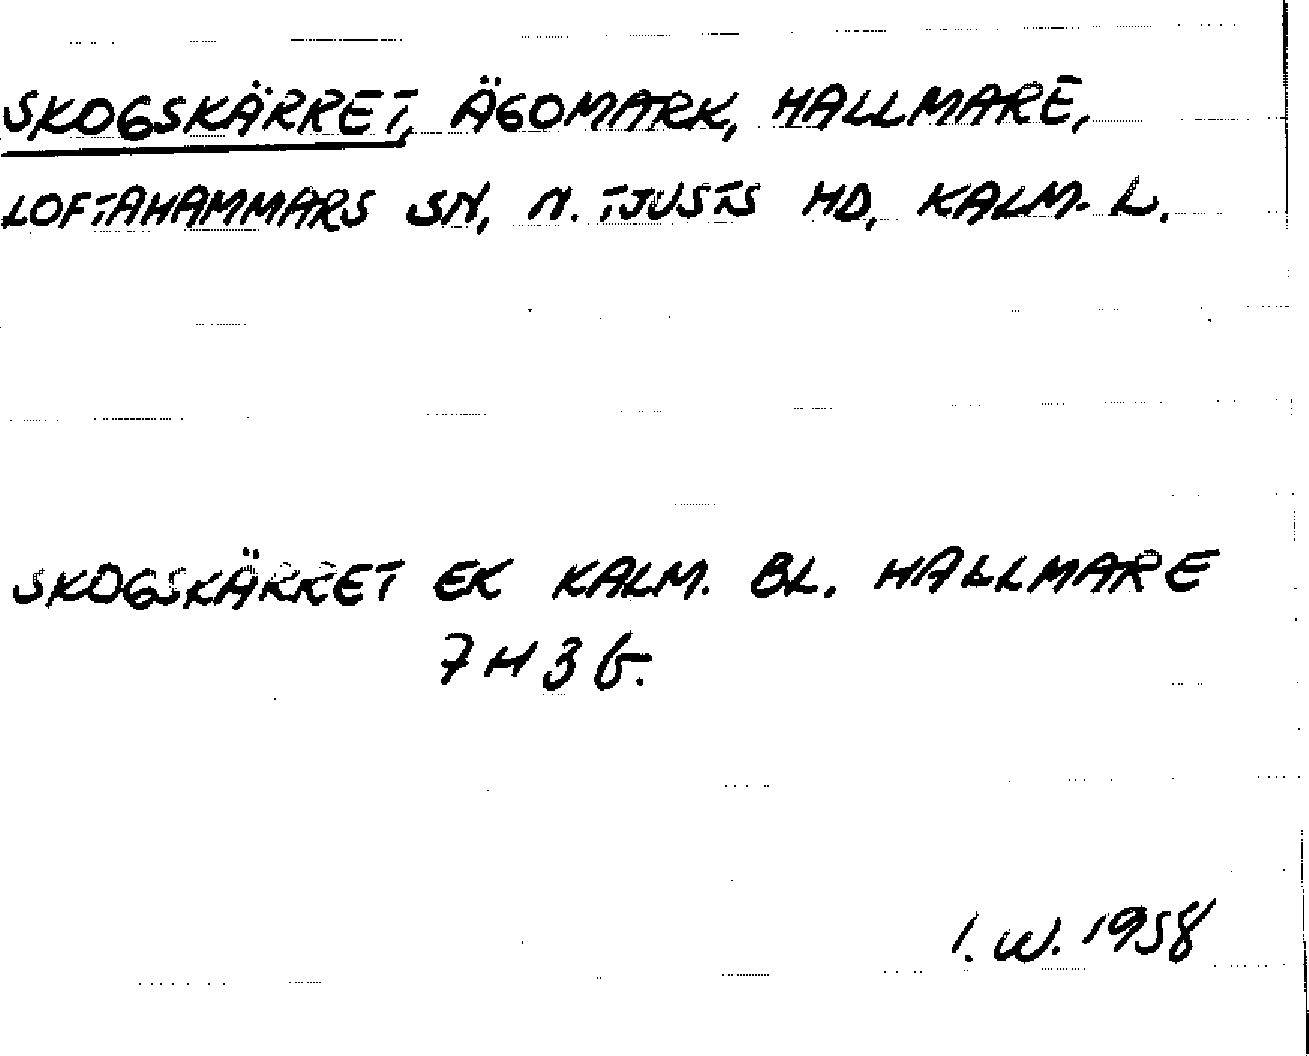 SKOGSKÄRRET, ÄGOMARK, HALLMARE,
LOFTAHAMMARS SN, N. TJUSTS HD, KALM. L.
SKOGSKÄRRET EK KALM. BL. HALLMARE
7 H 3 G.
I. W. 1958